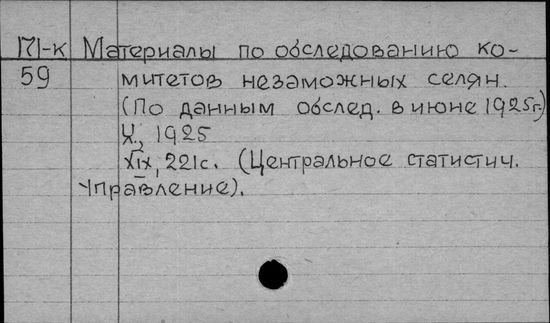 П1-к Материалы по обследованию ко-
59 митетов незаможных селян.
(По данным обслед. в июне 1925г.)
Х., 1925
XIX, 221с. (Центральное статистич.
Управление).